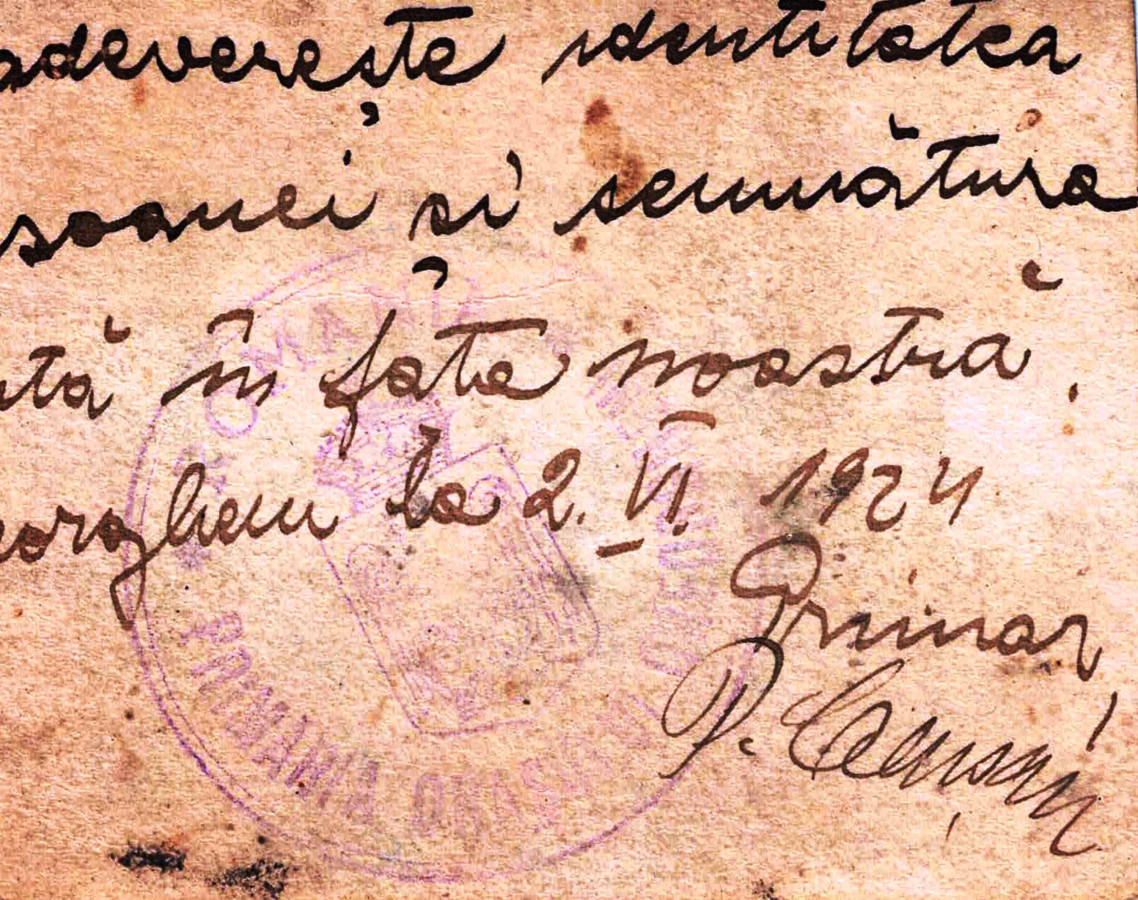 adeverește identitatea
soanei și semnătura
tă în fața noastră.
la 2. VI. 1924
Primar,
P.
ROMANIA
PRIMARIA ORAȘULUI